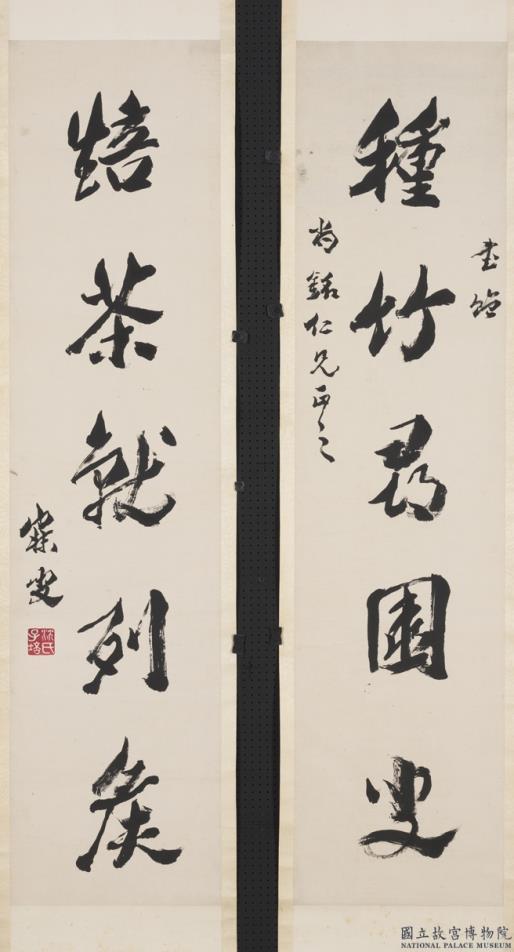 種竹尋園叟
尚銘仁兄正之
焙茶就列矦
寐叟
沈氏子培
國立故宮博物院
NATIONAL PALACE MUSEUM